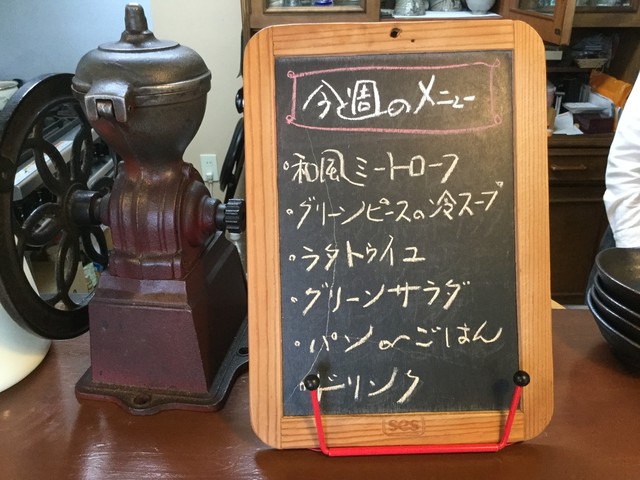 今週のメニュー
◦和風ミートローフ
◦グリーンピースの冷スープ
◦ラタトゥイユ
◦グリーンサラダ
◦パン or ごはん
◦ドリンク
SCS